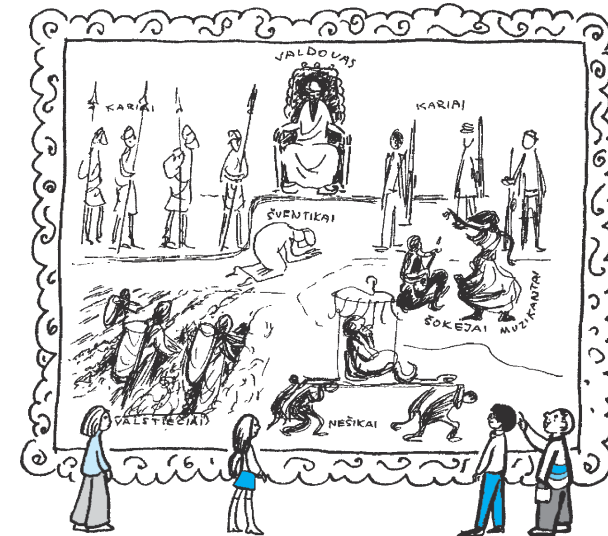 VALDOVAS
KARIAI
KARIAI
ŠVENTIKAI
ŠOKĖJAI
MUZIKANTAI
VALSTIEČIAI
NEŠIKAI